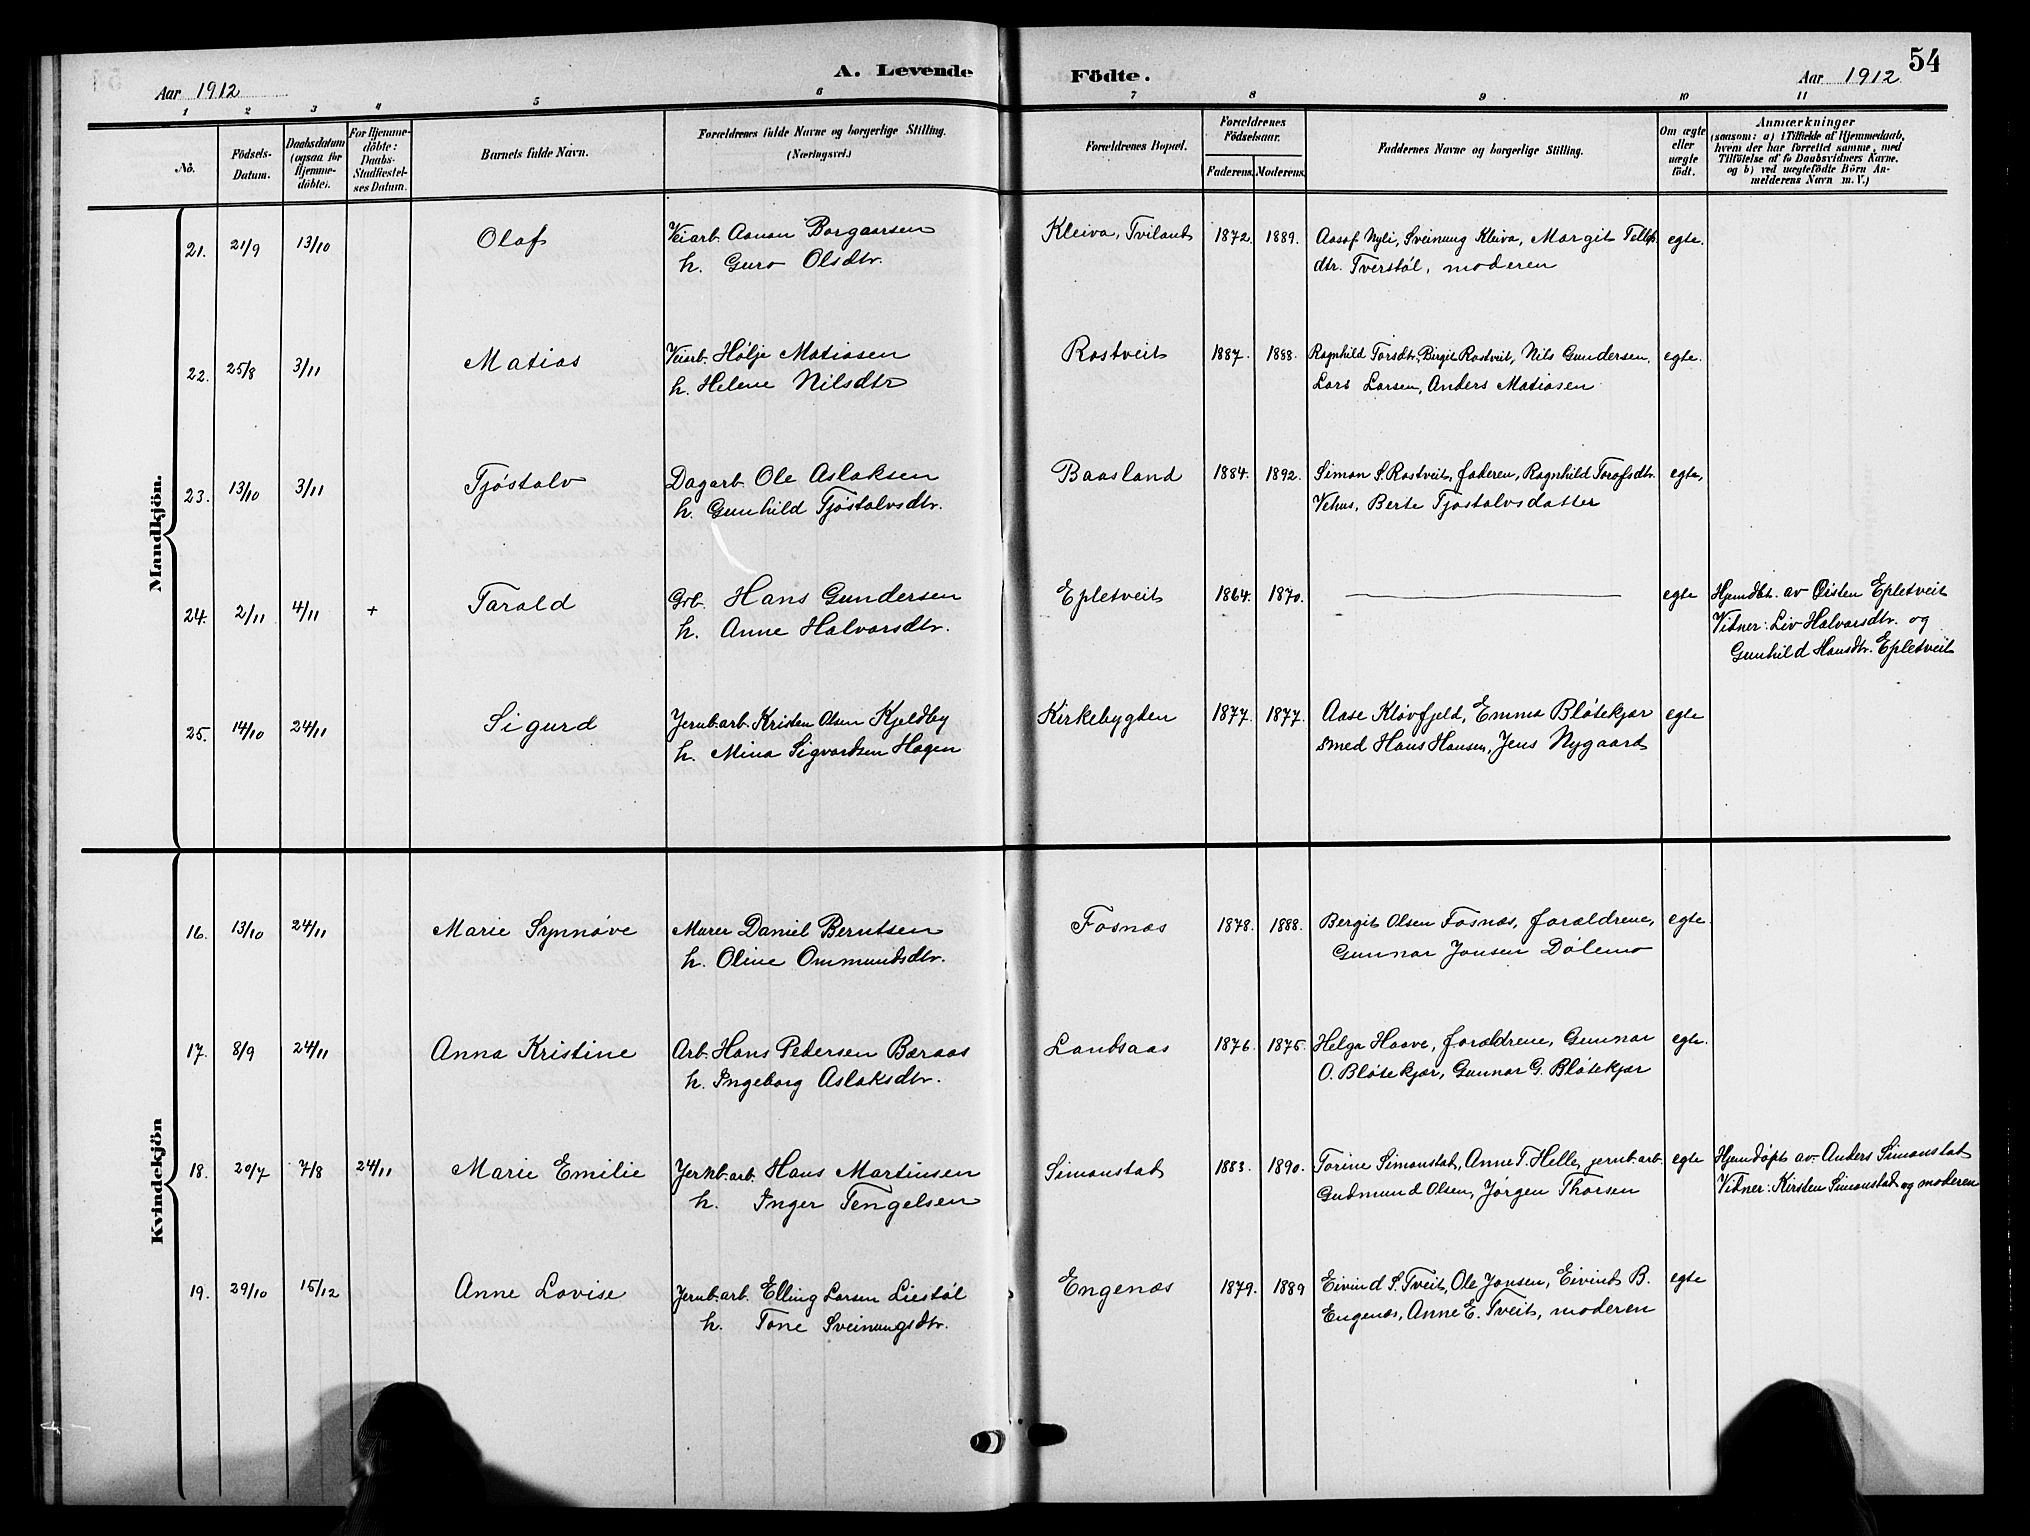 54
A. Levende Födte.
Aar 1912
Aar 1912
1 2 3 4 5 6 7 8 9 10 11
No.
Födsels-
Datum.
Daabsdatum
(ogsaa for
Hjemme-
döbte).
For Hjemme-
döbte:
Daabs-
Stadfæstel-
ses Datum.
Barnets fulde Navn.
Forældrenes fulde Navne og borgerlige Stilling.
(Næringsvei.)
Forældrenes Bopæl.
Forældrenes
Födselsaar.
Faderens. Moderens.
Faddernes Navne og borgerlige Stilling.
Om ægte
eller
uægte
født.
Anmærkninger
(saasom: a) i Tilfælde af Hjemmedaab,
hvem der har forrettet samme, med
Tilföielse af to Daabsvidners Navne.
og b) ved uægtefödte Börn An-
melderens Navn m. V.)
Mandkjön.
21. 21/9 13/10 Olaf Veiarb. Aanon Borgaarsen Kleiva, Tviland 1872. 1889. Aasof Nyli, Sveinung Kleiva, Margit Tellefs egte.
h. Guro Olsdtr. dtr. Tverstøl, moderen
22. 25/8 3/11 Matias Veiarb. Hølje Matiasen Rostveit 1887. 1888. Ragnhild Torsdtr, Birgit Rostveit, Nils Gundersen, egte.
h. Helene Nilsdtr Lars Larsen, Anders Matiasen
23. 13/10 3/11 Tjøstolv Dagarb. Ole Aslaksen Baasland 1884. 1892. Simon S. Rostveit, faderen, Ragnhild Torofsdtr. egte,
h. Gunhild Tjøstolvsdtr. Vehus, Berte Tjøstolvsdatter
24. 2/11 4/11 + Tarald Grb. Hans Gundersen Epletveit 1864. 1870. egte Hjemdbt. av Øisten Epletveit
h. Anne Halvorsdtr. Vitner: Liv Halvorsdtr. og
Gunhild Hansdtr. Epletveit
25. 14/10 24/11 Sigurd Jernb.arb. Kristen Olsen Kjeldby Kirkebygden 1877. 1877. Aase Kløvfjeld, Emma Bløtekjær egte
h. Mina Sigvardsen Hagen smed Hans Hansen, Jens Nygaard
Kvindekjön
16. 13/10 24/11 Marie Synnøve Murer Daniel Berntsen Fosnæs 1878. 1888. Bergit Olsen Fosnæs, forældrene, egte.
h. Oline Ommundsdtr. Gunnar Jonsen Dølemo
17. 8/9 24/11 Anna Kristine Arb. Hans Pedersen Bæraas Landsaas 1876. 1875. Helga Haave, forældrene, Gunnar egte.
h. Ingeborg Aslaksdtr. O. Bløtekjær, Gunnar G. Bløtekjær
18. 20/7 7/8 24/11 Marie Emilie Jernb.arb. Hans Martinsen Simonstad 1883. 1890. Torine Simonstad, Anne T. Helle, jernb.arb. egte Hjemdøpt av Anders Simonstad
h. Inger Tengelsen Gudmund Olsen, Jørgen Thorsen Vitner: Kirsten Simonstad og moderen
19. 29/10 15/12 Anne Lovise Jernb.arb. Elling Larsen Liestøl Engenæs 1879. 1889 Eivind S. Tveit, Ole Jonsen, Eivind B. egte
h. Tone Sveinungsdtr. Engenæs, Anne E. Tveit, moderen